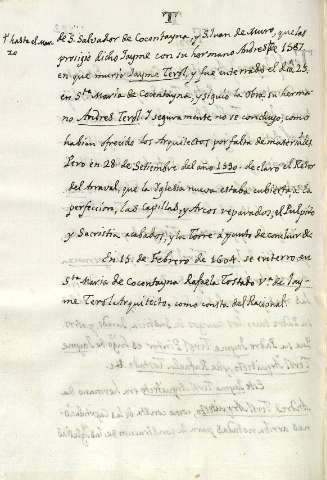 T
de S. Salvador de Cocentayna, y S. Juan de Muro, que las
+ hasta el Marzo
prosigio dicho Jayme con su hermano Andres de 1587.
en que murio Jayme Terol, y fue enterrado el dia 25.
en Sta Maria de Cocentayna, y siguio la Obra su herma-
no Andres Terol. I seguramente no se concluyo, como
habian ofrecido los Arquitectos por falta de materiales.
Pero en 28. de Setiembre del año 1590. declaro el Retor
del Arraval, que la Iglesia nueva estaba cubierta à la
perfecion, las Capillas, y Arcos reparados, el Pulpito
y Sacristia acabados, y la Torre à punto de concluir se
En 15. de Febrero de 1604. se enterro en
Sta Maria de Cocentayna Rafaela Tostado Va de Jay-
me Terol Arquitecto, como consta del Racional.